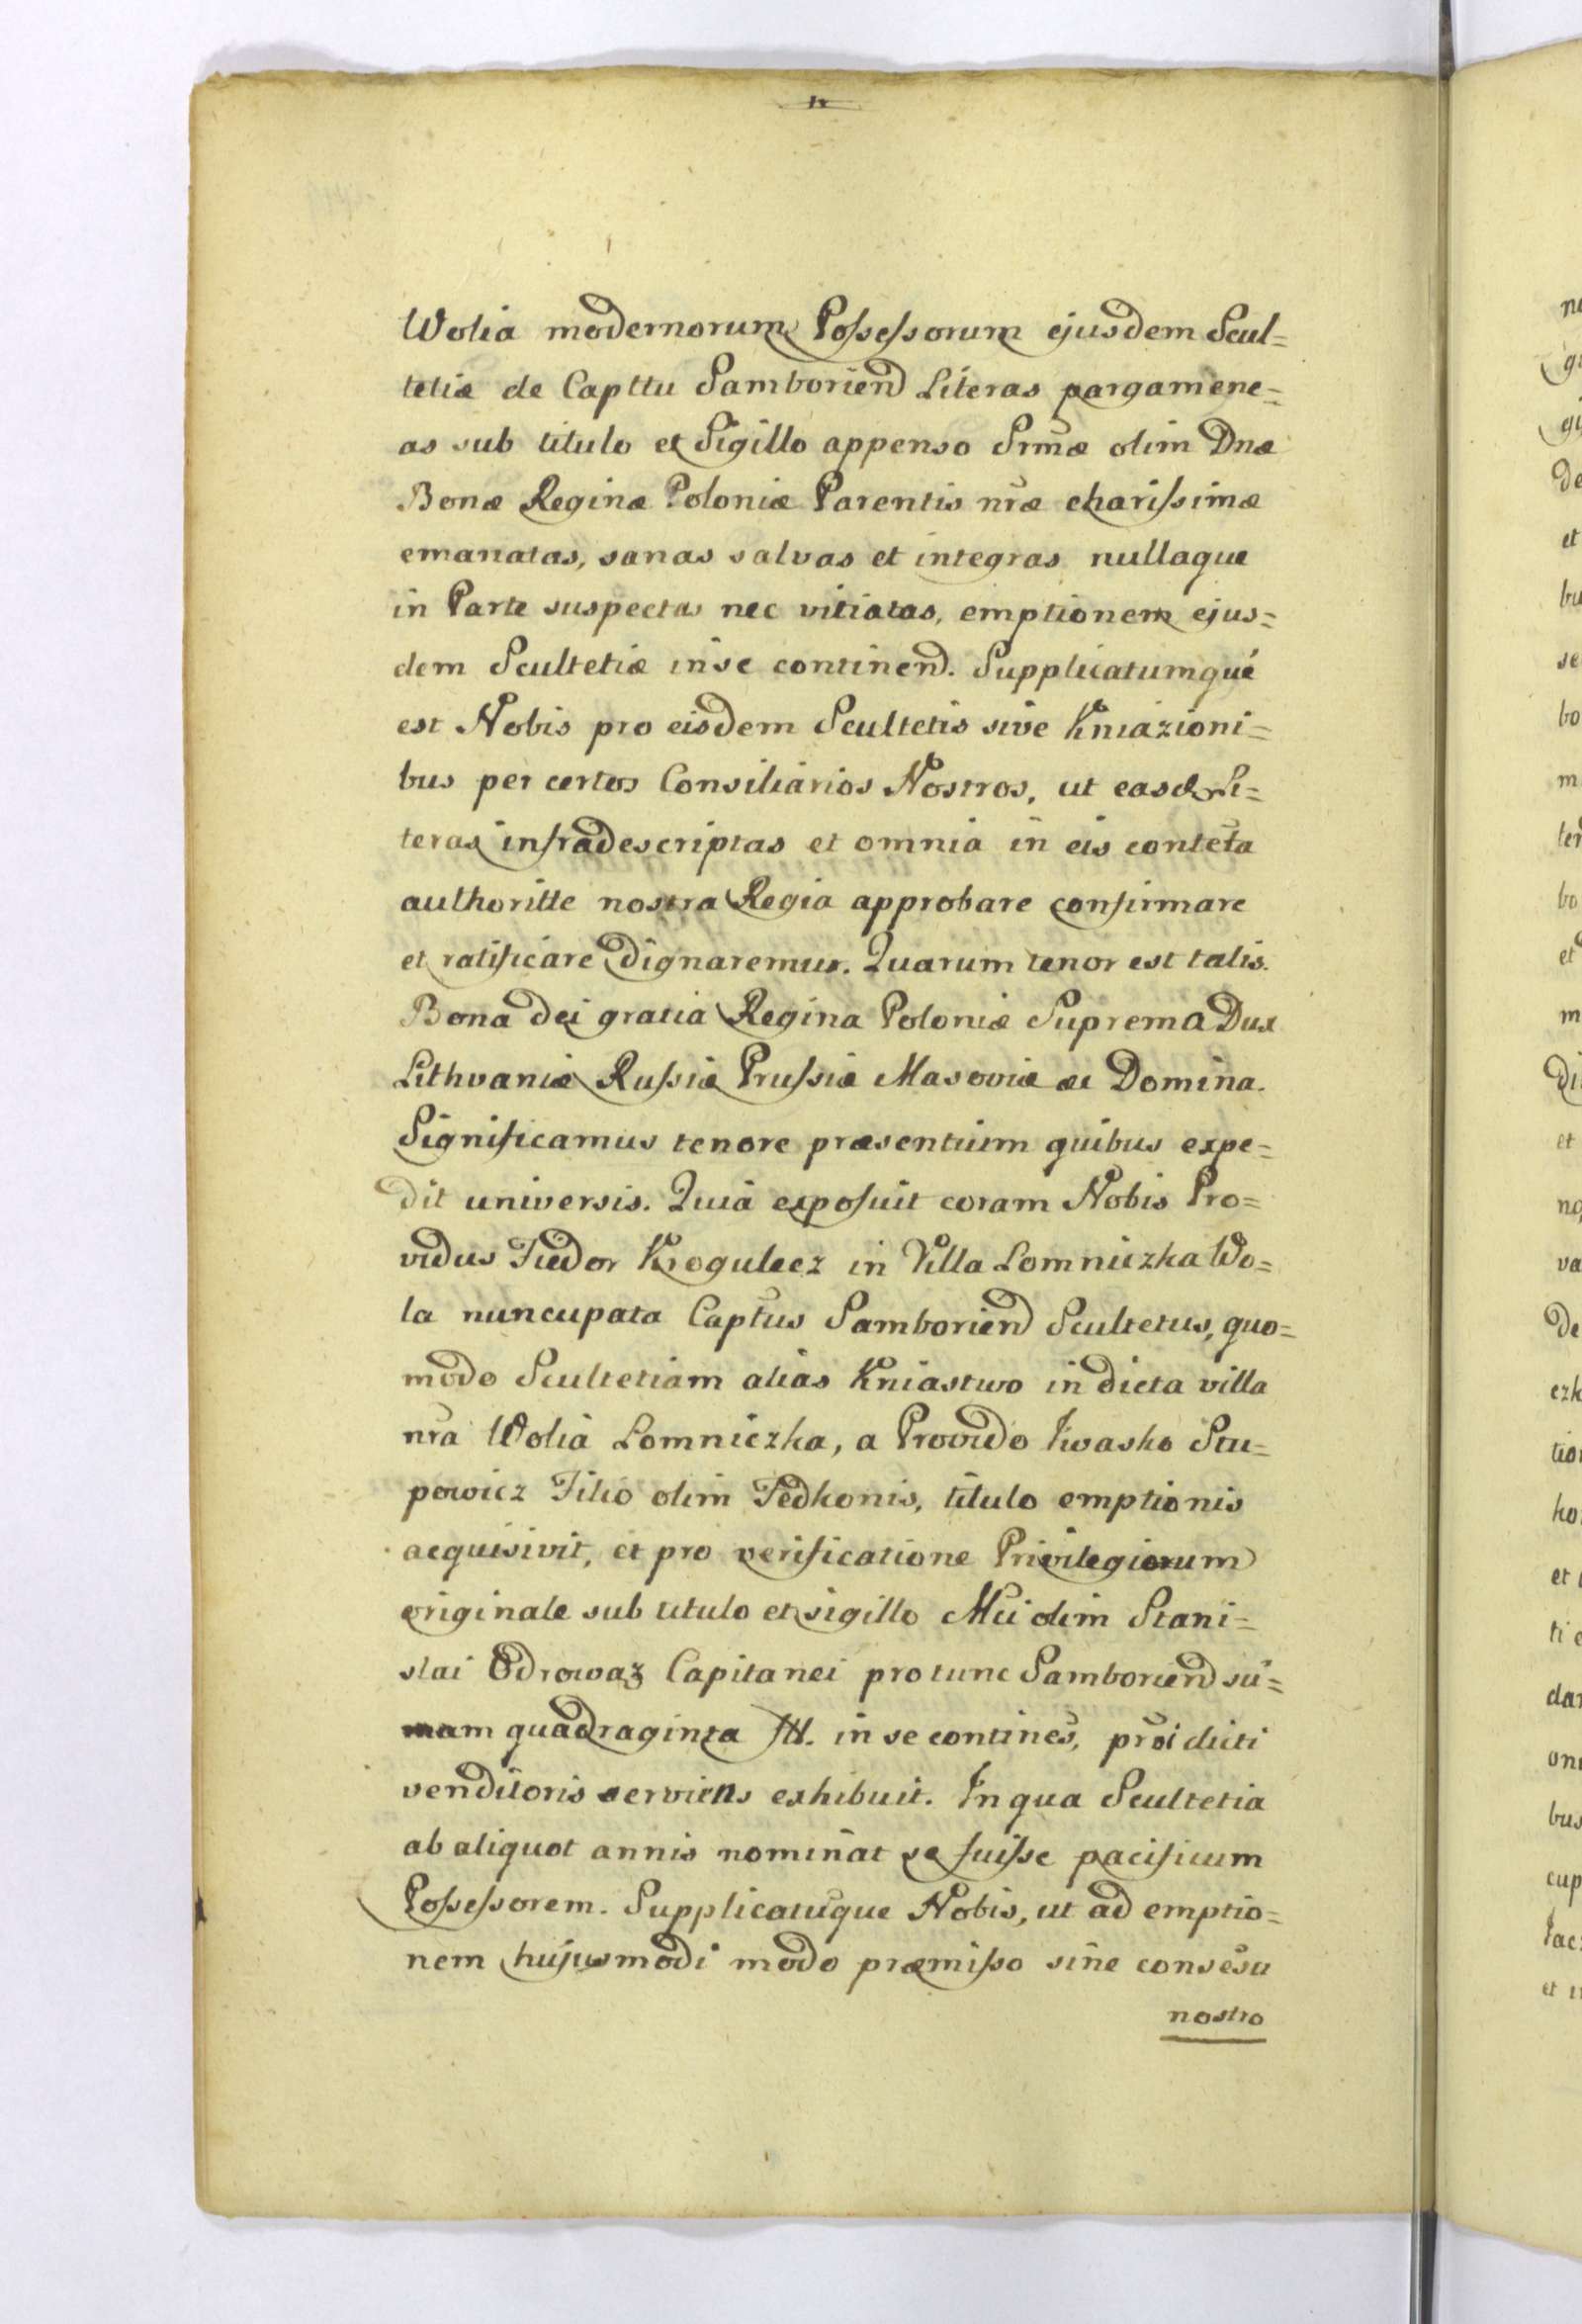 Wolia modernorum Possessorum ejusdem Scul=
tetiæ de Capttu Samborien̄d Literas pargamene=
as sub titulo et Sigillo appenso Srm̄æ olim Dnæ
Bonæ Reginæ Poloniæ Parentis nr̄æ charissimæ
emanatas, sanas salvas et integras nullaque
in Parte suspectas nec vitiatas, emptionem ejus=
dem Scultetiæ in se continend. Supplicatumqué
est Nobis pro eisdem Scultetis sive Kniazioni=
bus per certos Consiliarios Nostros, ut easd Li=
teras infradescriptas et omnia in eis contēta
authoritte nostra Regia approbare confirmare
et ratificare dignaremur. Quarum tenor est talis.
Bona dei gratia Regina Poloniæ Suprema Dux
Lithvaniæ Russiæ Prussiæ Masoviæ &c Domina.
Significamus tenore præsentium quibus expe=
dit universis. Quia exposuit coram Nobis Pro=
vidus Fiedor Kroguleez in Villa Lomniczka Wo=
la nuncupata Capt̄us Samborien̄d Scultetus, quo=
modo Scultetiam alias Kniastwo in dicta villa
nr̄a Wolia Lomniczka, a Provido Iwasko Stu=
powicz Filio olim Fedkonis, titulo emptionis
acquisivit, et pro verificatione Privilegiorum
originale sub titulo et sigillo Mci olim Stani=
slai Odrowaz Capitanei pro tunc Samboriend su̅=
mam quadraginta in se contines̄, pr̄oi dicti
venditoris serviens exhibuit. In qua Scultetia
ab aliquot annis nomin̄at se fuisse pacificum
Possessorem. Supplicatuq̄ue Nobis, ut ad emptio=
nem hujusmodi modo præmisso sine consēsu
nostro